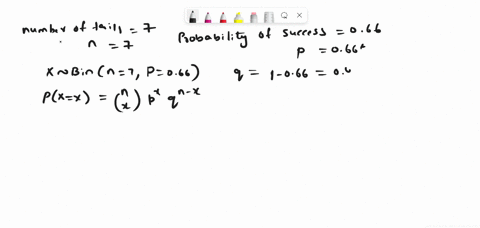 number of tails = 7 Probability of success = 0.66
n = 7 p = 0.66
X ~ Bin (n = 7, P = 0.66) q = 1 - 0.66 = 0.
P(x = x) = (n x) p^x q^{n-x}